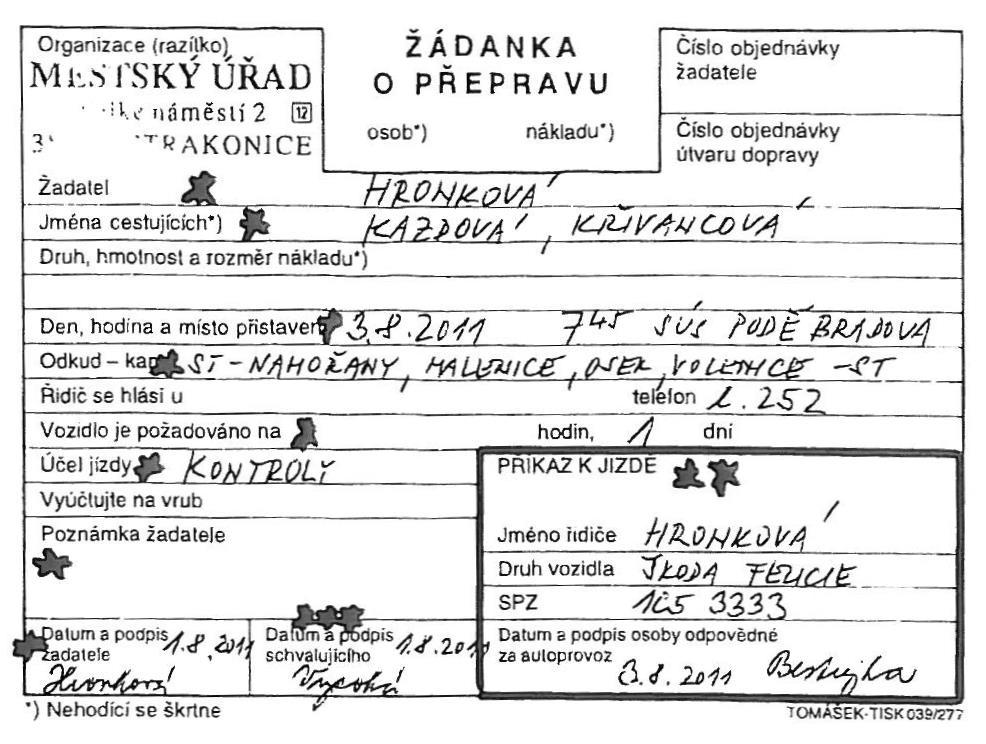 Organizace (razítko)
MĚSTSKÝ ÚŘAD
náměstí 2 12
TRAKONICE
ŽÁDANKA
O PŘEPRAVU
osob*) nákladu*)
Číslo objednávky
žadatele
Číslo objednávky
útvaru dopravy
Žadatel HRONKOVÁ
Jména cestujících*) KAZDOVÁ, KŘIVANCOVÁ
Druh, hmotnost a rozměr nákladu*)
Den, hodina a místo 3.8.2011 7 45 SÚS PODĚBRADOVA
Odkud – ST - NAHOŘANY, MALENICE, OSEK, VOLENICE - ST
Řidič se hlásí u telefon l. 252
Vozidlo je požadováno na hodin, 1 dní
Účel jízdy KONTROLY
Vyúčtujte na vrub
Poznámka žadatele
PŘÍKAZ K JÍZDĚ
Jméno řidiče HRONKOVÁ
Druh vozidla ŠKODA FELICIE
SPZ 1C5 3333
Datum a podpis 1.8.2011
žadatele Hronková
Datum a podpis 1.8.2011
schvalujícího Vysoká
Datum a podpis osoby odpovědné
za autoprovoz 3.8.2011
*) Nehodící se škrtne
TOMÁŠEK-TISK 039/277